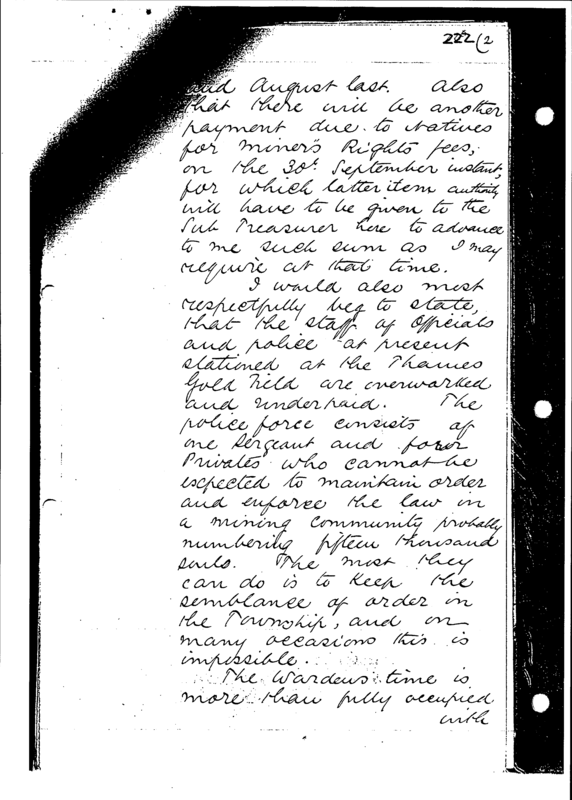 222(2
and August last. Also
that there will be another
payment due to Natives
for miner's Rights fees,
on the 30th September instant,
for which latter item authority
will have to be given to the
Sub Treasurer here to advance
to me such sum as I may
require at that time.
I would also most
respectfully beg to state,
that the staff of Officials
and police at present
stationed at the Thames
Gold Field are overworked
and underpaid. The
police force consists of
one Sergeant and four
Privates who cannot be
expected to maintain order
and enforce the law in
a mining community probably
numbering fifteen thousand
souls. The most they
can do is to keep the
semblance of order in
the Township, and on
many occasions this is
impossible.
The Wardens time is
more than fully occupied
with